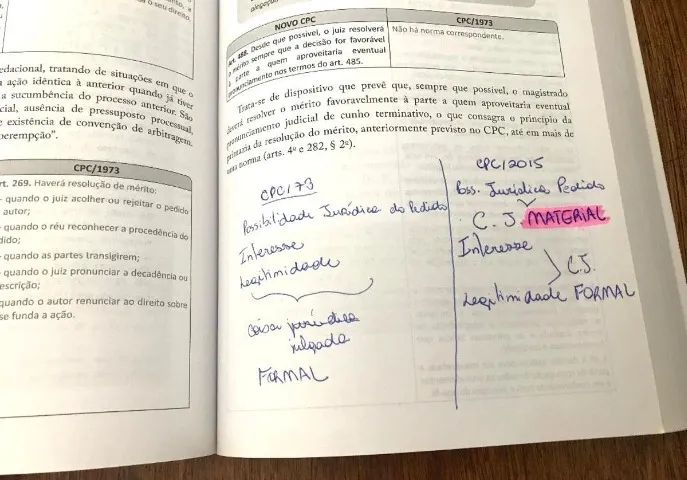 o seu direito.
edacional, tratando de situações em que o
a ação idêntica à anterior quando já tiver
a sucumbência do processo anterior. São
cial, ausência de pressuposto processual,
e existência de convenção de arbitragem.
perempção".
CPC/1973
rt. 269. Haverá resolução de mérito:
- quando o juiz acolher ou rejeitar o pedido
autor;
- quando o réu reconhecer a procedência do
dido;
- quando as partes transigirem;
- quando o juiz pronunciar a decadência ou
escrição;
quando o autor renunciar ao direito sobre
se funda a ação.
NOVO CPC
CPC/1973
Art. 488. Desde que possível, o juiz resolverá
o mérito sempre que a decisão for favorável
à parte a quem aproveitaria eventual
pronunciamento nos termos do art. 485.
Não há norma correspondente.
Trata-se de dispositivo que prevê que, sempre que possível, o magistrado
deverá resolver o mérito favoravelmente à parte a quem aproveitaria eventual
pronunciamento judicial de cunho terminativo, o que consagra o princípio da
primazia da resolução do mérito, anteriormente previsto no CPC, até em mais de
uma norma (arts. 4º e 282, § 2º).
CPC/73
Possibilidade Jurídica do Pedido
Interesse
Legitimidade
Coisa jurídica
julgada
FORMAL
CPC/2015
Poss. Jurídica Pedido
C. J. MATERIAL
Interesse
C.J.
Legitimidade FORMAL